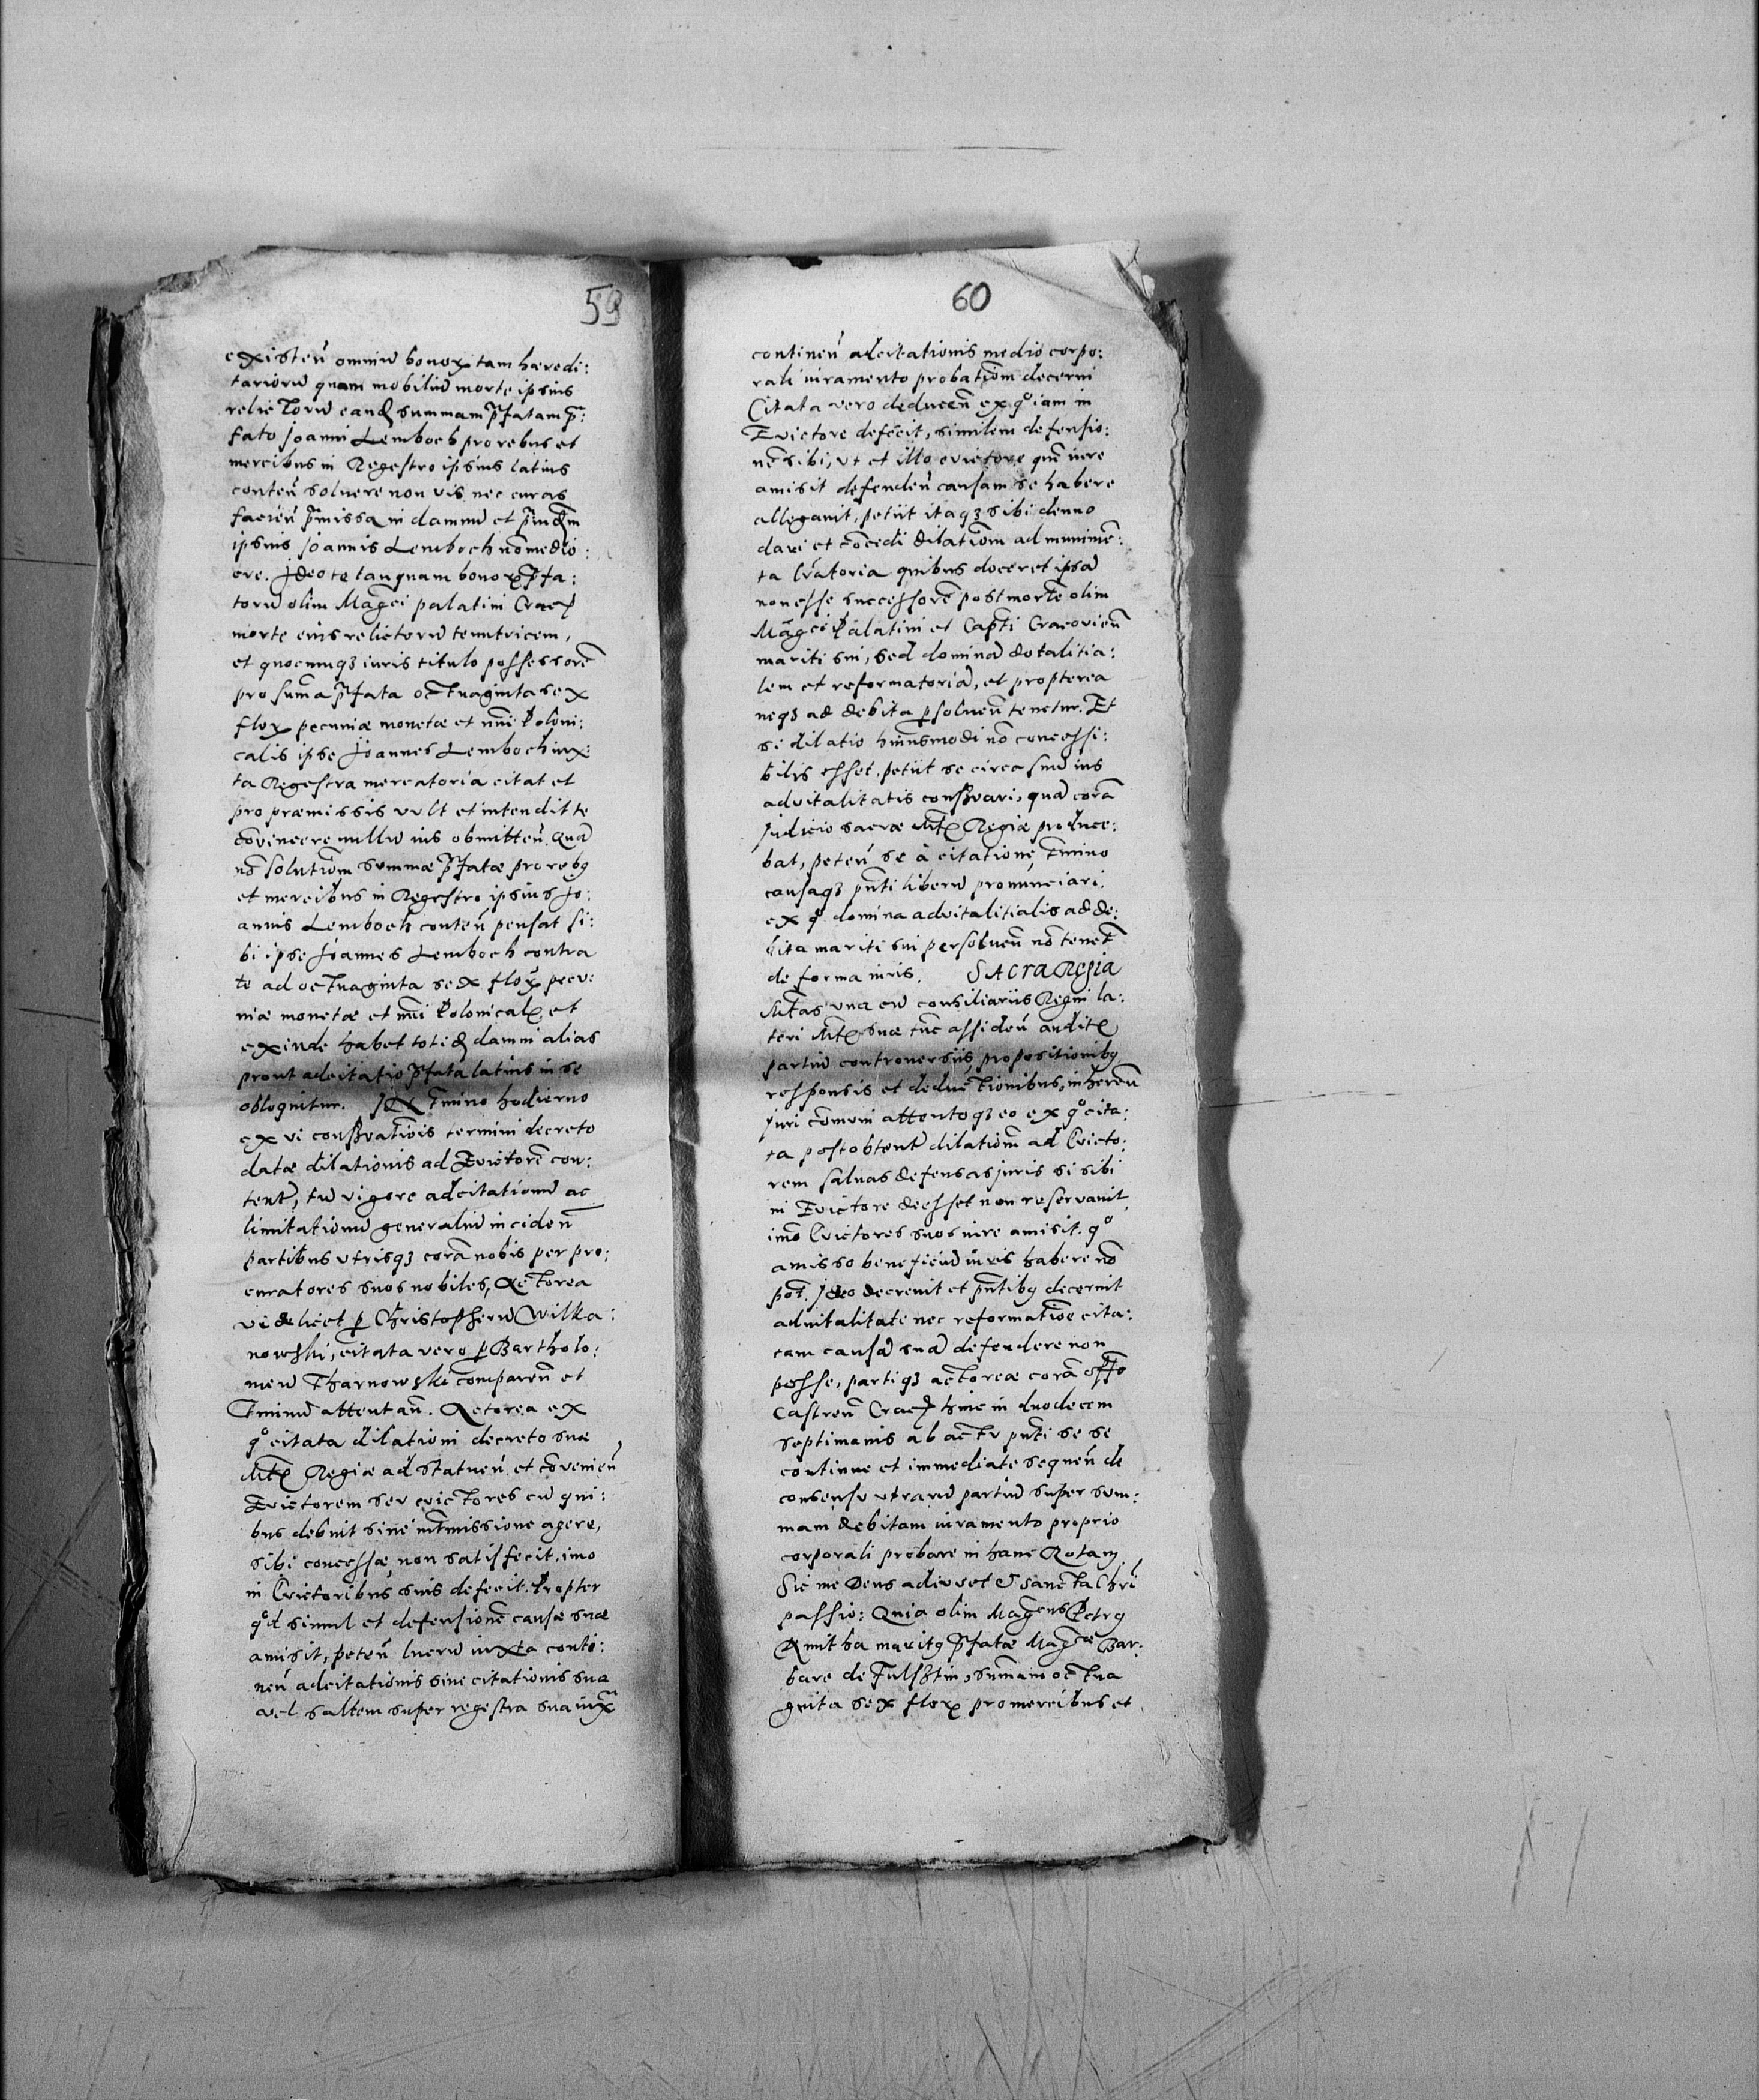 59
existeñ omniũ bonoꝝ tam hæredi:
tarioru͂ quam mobiliũ morte ipsius
relictorũ eand̃ summam p̃fatam p̃:
fato Joanni Lemboch pro rebus et
mercibus in Regestro ipsius latius
conteñ soluere non vis nec curas
facieñ p̃missa in damnũ et p̃iud̃m
ipsius Joannis Lemboch nõ medio:
cre. Jdeo te tanquam bonoꝝ p̃fa:
torũ olim Mag̃ci palatini Crac̃
morte eius relictorũ tenutricem,
et quocunqꝫ iuris titulo possessorẽ
pro sum̃a p̃fata octuaginta sex
floꝝ pecuniæ monetæ et nũi Poloni:
calis ipse Joannes Lemboch iux:
ta Regestra mercatoria citat et
pro præmissis vult et intendit te
cõvincere nullũ ius obmitteñ. Quã
nõ solutiõm summæ p̃fatæ pro rebꝰ
et mercibus in Regestro ipsius Jo:
annis Lemboch conteñ pensat si:
bi ipse Joannes Lemboch contra
te ad octuaginta sex floꝝ pecu:
niæ monetæ et nũi Polonicał, et
exinde habet totid̃ damni alias
prout adcitatio p̃fata latius in se
obloquitur. JN t̃mino hodierno
ex vi conseruatiõis termini decreto
datæ dilationis ad Euictorẽ con:
tent̃, tũ vigore adcitationũ ac
limitationũ generaliũ incideñ
partibus vtrisqꝫ corã nobis per pro:
curatores suos nobiles, Actorea
videlicet p Christopherũ Wilka:
nowski, citata vero p Bartholo:
meũ Tharnowski compareñ et
t̃minũ attentañ. Actorea ex
qº citata dilationi decreto suæ
Mt̃ꝭ Regiæ ad statueñ et cõvenieñ
Euictorem seu euictores cũ qui:
bus debuit sine int̃missione agere,
sibi concessæ, non satisfecit, imo
in Euictoribus suis defecit. Propter
qºd simul et defensionẽ causæ suæ
amisit, peteñ lucrũ iuxta conti:
neñ adcitationis siue citationis sua
vel saltem super regestra sua iux̃
60
contineñ adcitationis medio corpo:
rali iuramento probatiõm decerni
Citata vero deduceñ ex qº iam in
Euictore defecit, similem defensio:
nẽ sibi, vt et illo euictore quẽ iure
amisit defendeñ causam se habere
allegauit, petiit itaqꝫ sibi denuo
dari et cõcedi dilatiõm ad munimẽ:
ta lr̃atoria quibus doceret ipsã
non esse successorẽ post mortẽ olim
Mag̃ci Palatini et Capt̃i Cracovieñ
mariti sui, sed dominã dotalitia:
lem et reformatoriã, et propterea
neqꝫ ad debita p solueñ tenetur. Et
si dilatio huiusmodi nõ concessi:
bilis esset, petiit se circa suũ ius
advitalitatis conseruari, quã corã
Judicio sacræ Mt̃ꝭ Regiæ produce:
bat, peteñ se à citatione, t̃mino
causaqꝫ pñti liberũ pronunciari,
ex qº domina advitalitialis ad de:
bita mariti sui persolueñ nõ tenet̃
de forma iuris. SACRA Regia
Mt̃as vna cũ consiliariis Regni la:
teri Mt̃ꝭ suæ tũc assideñ auditꝭ
partiũ controuersiis, propositionibꝰ,
responsis et deductionibus, inhæreñ
Juri cõmuni attentoqꝫ eo ex qº cita:
ta post obtent̃ dilatiõm ad Euicto:
rem saluas defensas juris si sibi
in Euictore deesset non reservauit,
imõ Euictores suos iure amisit. qº
amisso beneficiũ iuris habere nõ
pot̃. Jdeo decreuit et pñtibꝰ decernit
aduitalitate nec reformatiõe cita:
tam causã suã defendere non
posse, partiqꝫ actoreæ corã off̃o
Castreñ Crac̃ hinc in duodecem
septimanis ab actu pñti se se
continue et immediate sequeñ de
consensu vtrarũ partiũ super sum:
mam debitam iuramento proprio
corporali probare in hanc Rotam.
Sic me Deus adiuuet & sancta Chri̇̃
passio: Quia olim Mag̃cus Petrꝰ
Kmitha maritꝰ p̃fatæ Mag̃cæ Bar:
bare de Fulsztin, sum̃am octua
ginta sex floꝝ pro mercibus et